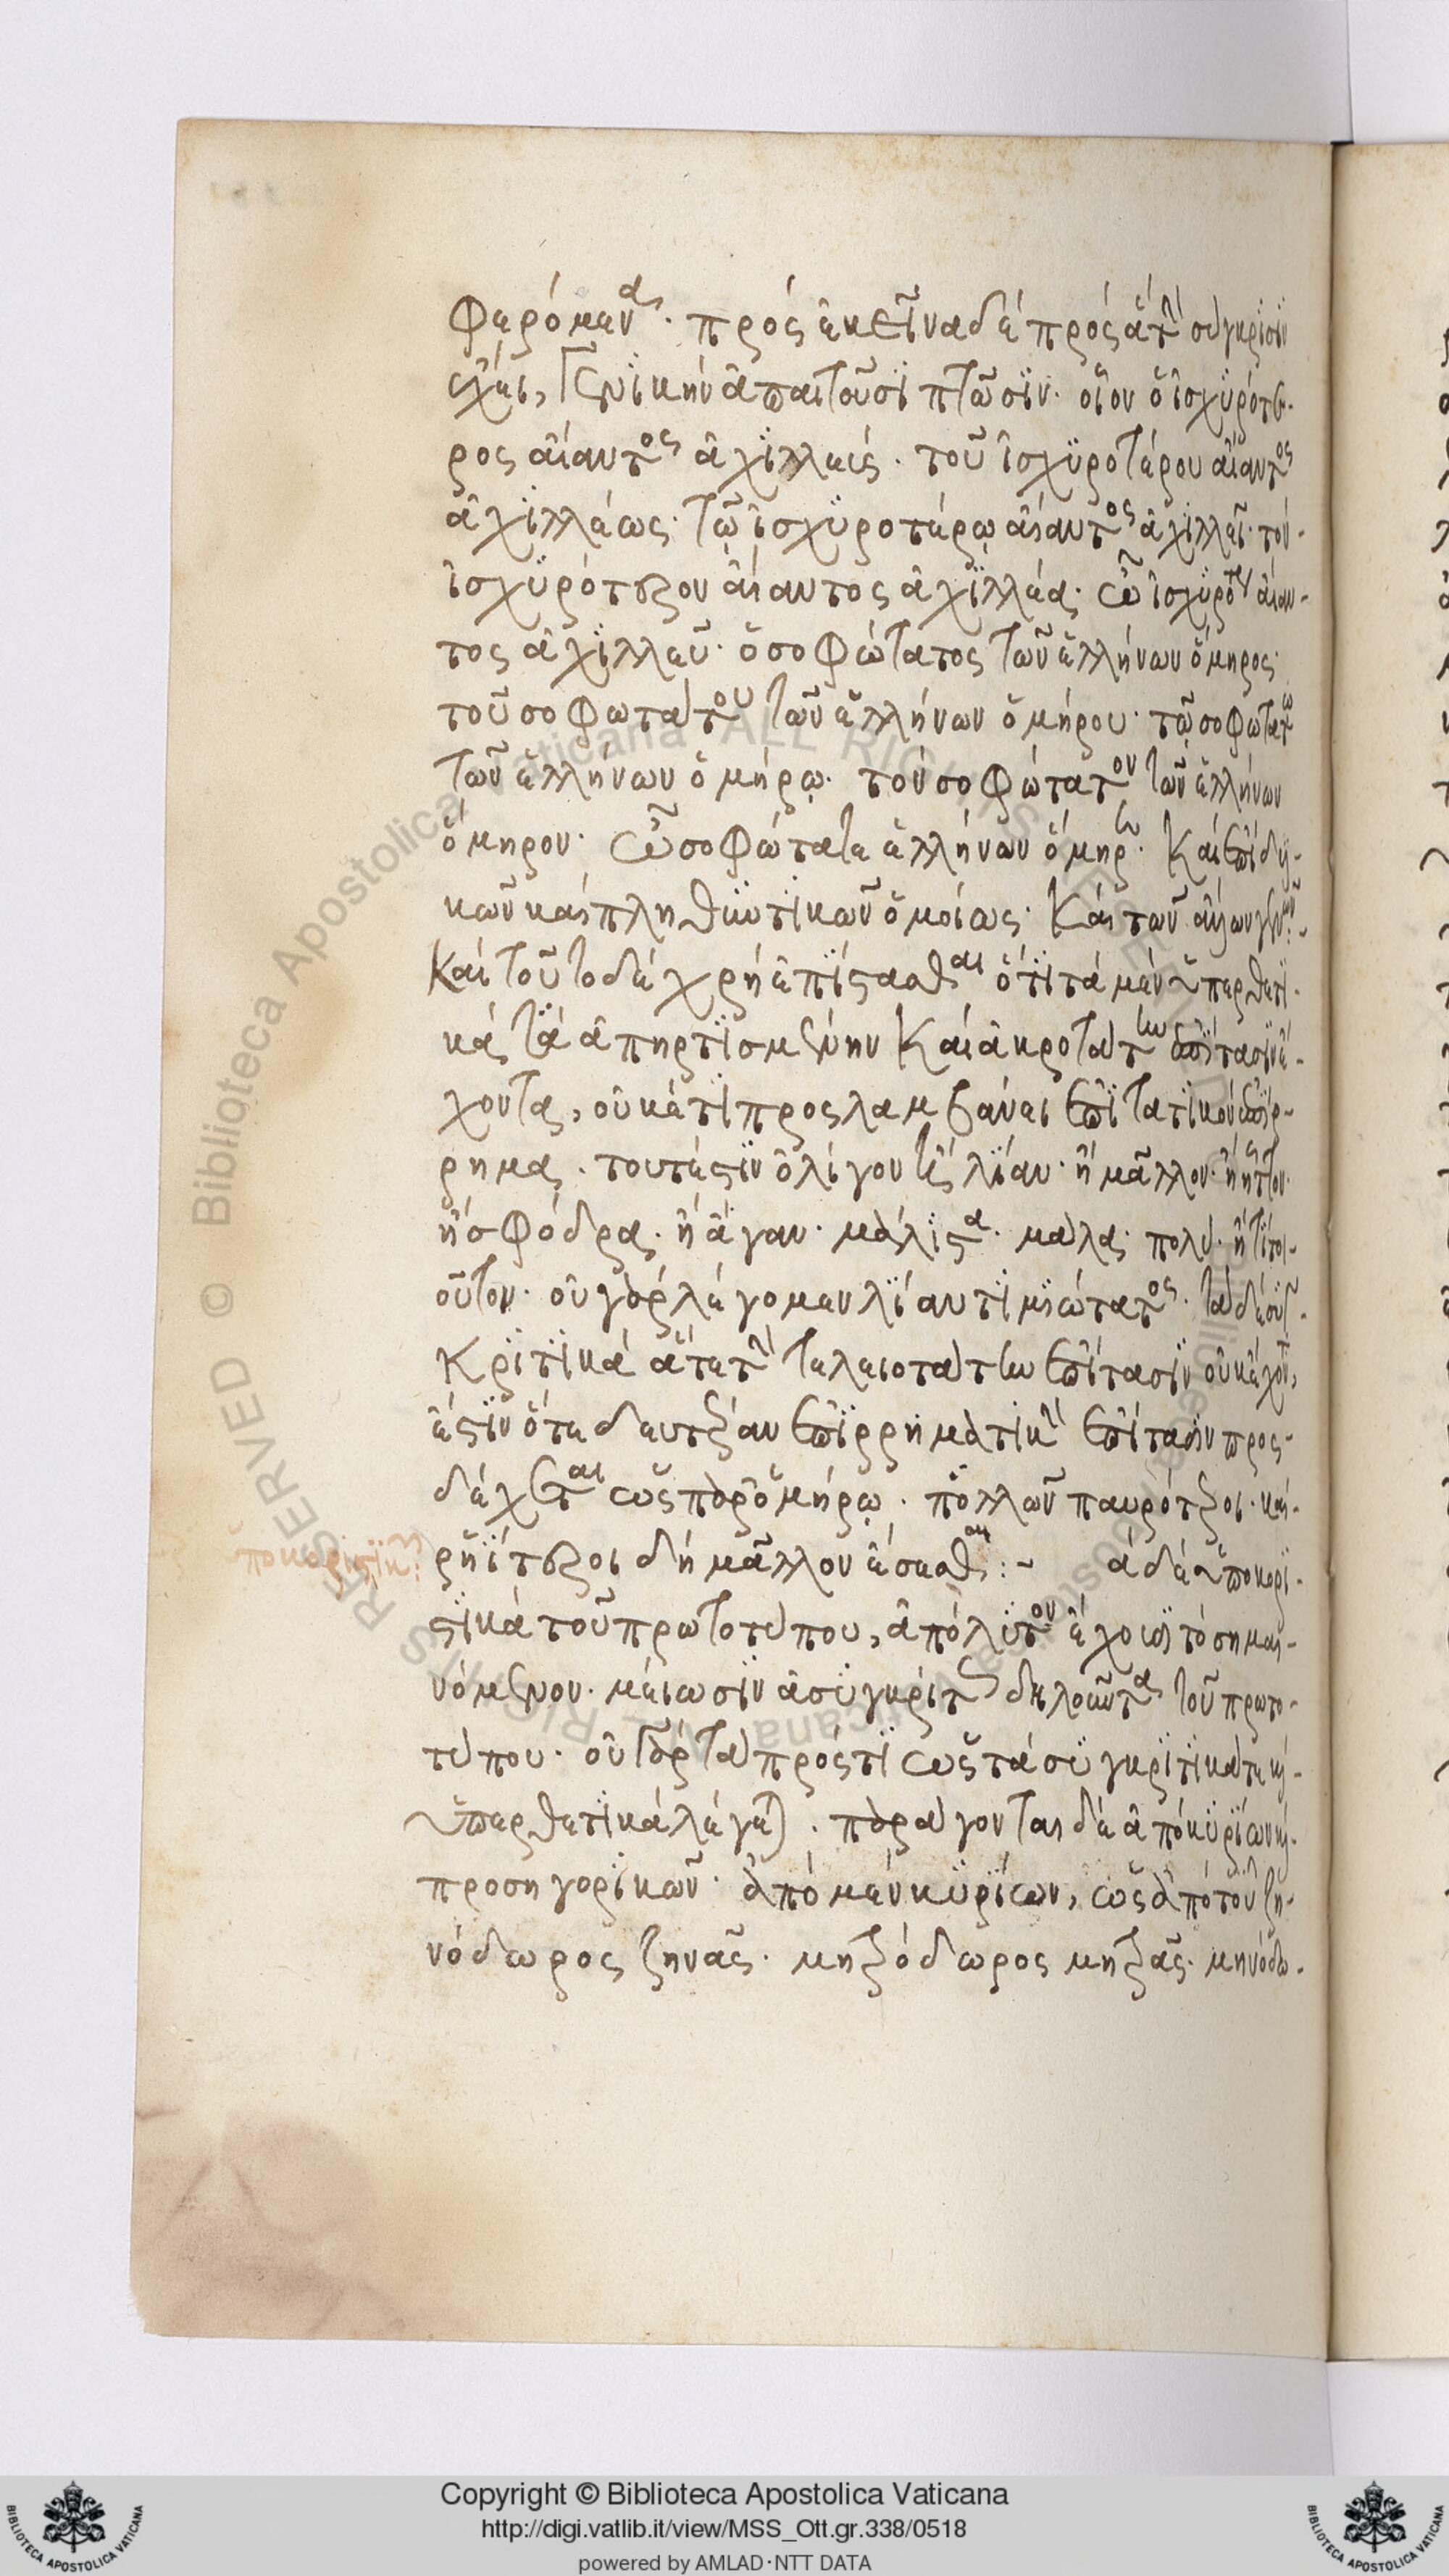 φερόμενα. πρὸς ἐκεῖνα δὲ πρὸς ἃ τὴν σύγκρισιν
ἔχει, γενικὴν ἀπαιτοῦσι πτῶσιν. οἷον ὁ ἰσχυρότε-
ρος αἴαντος ἀχιλλεύς. τοῦ ἰσχυροτέρου αἴαντος
ἀχιλλέως. τῷ ἰσχυροτέρῳ αἴαντος ἀχιλλεῖ. τὸν
ἰσχυρότερον αἴαντος ἀχιλλέα. ὦ ἰσχυρότερε αἴαν-
τος ἀχιλλεῦ. ὁ σοφώτατος τῶν ἑλλήνων ὅμηρος.
τοῦ σοφωτάτου τῶν ἑλλήνων ὁμήρου. τῷ σοφωτάτῳ
τῶν ἑλλήνων ὁμήρῳ. τὸν σοφώτατον τῶν ἑλλήνων
ὅμηρον. ὦ σοφώτατε ἑλλήνων ὅμηρε. καὶ ἐπὶ δυϊ-
κῶν καὶ πληθυντικῶν ὁμοίως. καὶ τῶν ἄλλων γενῶν.
καὶ τοῦτο δὲ χρὴ ἐπίστασθαι ὅτι τὰ μὲν ὑπερθετι-
κὰ τὰ ἀπηρτισμένην καὶ ἀκροτάτην ἐπίτασιν ἔ-
χοντα, οὐκέτι προσλαμβάνει ἐπιτατικὸν ἐπίρ-
ρημα. τουτέστιν ὀλίγον τὲ λίαν. ἢ μᾶλλον. ἢ ἧττον.
ἢ σφόδρα. ἢ ἄγαν. μάλιστα. μάλα. πολύ. ἤ τι τοι-
οῦτον. οὐ γὰρ λέγομεν λίαν τιμιώτατος. τὰ δὲ συγ-
κριτικὰ ἅτε τὴν τελειοτάτην ἐπίτασιν οὐκ ἔχοντα,
ἔστιν ὅτε δευτέραν ἐπιρρηματικὴν ἐπίτασιν προς-
δέχεται ὡς παρ' ὁμήρῳ. πολλῶν παυρότεροι. καὶ
ῥηΐτεροι δὴ μᾶλλον ἔσεσθαι:~ τὰ δὲ ὑποκορι-
στικὰ τοῦ πρωτοτύπου, ἀπόλυτον ἔχουσι τὸ σημαι-
νόμενον. μείωσιν ἀσυγκρίτως δηλοῦντα τοῦ πρωτο-
τύπου. οὐ γὰρ τὰ πρός τι ὡς τὰ συγκριτικά τε καὶ
ὑπερθετικὰ λέγεται. παράγονται δὲ ἀπὸ κυρίων καὶ
προσηγορικῶν. ἀπὸ μὲν κυρίων, ὡς ἀπὸ τοῦ ζη-
νόδωρος ζηνᾶς. μητρόδωρος μητρᾶς. μηνόδω-
Copyright © Biblioteca Apostolica Vaticana
http://digi.vatlib.it/view/MSS_Ott.gr.338/0518
powered by AMLAD·NTT DATA
BIBLIOTECA APOSTOLICA VATICANA
BIBLIOTECA APOSTOLICA VATICANA